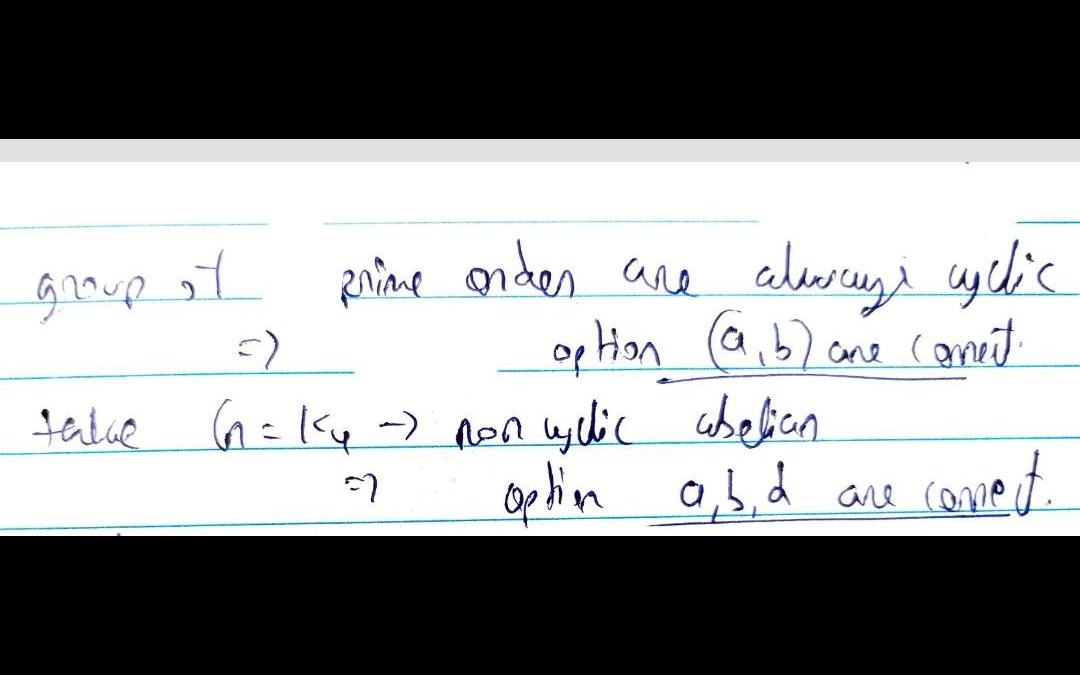 group of prime order are always cyclic
=> option (a,b) are correct.
take G = K4 → non cyclic abelian
=> option a,b,d are correct.